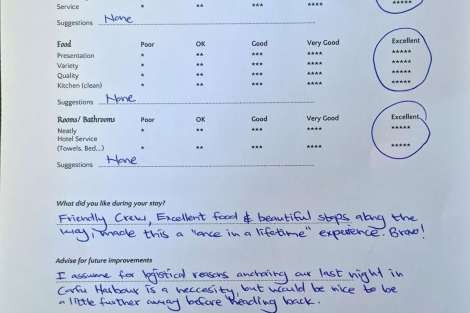 Service * ** *** **** *****
Suggestions None
Food Poor OK Good Very Good Excellent
Presentation * ** *** **** *****
Variety * ** *** **** *****
Quality * ** *** **** *****
Kitchen (clean) * ** *** **** *****
Suggestions None
Rooms/ Bathrooms Poor OK Good Very Good Excellent
Neatly * ** *** **** *****
Hotel Service
(Towels, Bed...) * ** *** **** *****
Suggestions None
What did you like during your stay?
Friendly Crew, Excellent food & beautiful stops along the
way, made this a "once in a lifetime" experience. Bravo!
Advise for future improvements
I assume for logistical reasons anchoring our last night in
Corfu Harbour is a neccesity, but would be nice to be
a little further away before heading back.